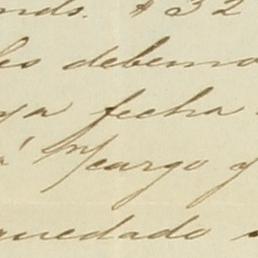 nds. $32
les debemo
ya fecha
á m/ cargo y
quedado